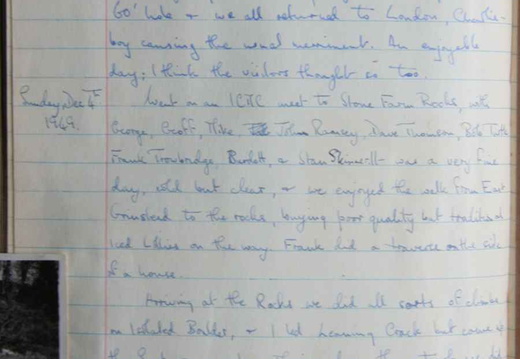 Go' hole & we all returned to London, Charlie-
boy causing the usual merriment. An enjoyable
day; I think the visitors thought so too.
Sunday, Dec 4th
1949.
Went on an ICMC meet to Stone Farm Rocks, with
George, Croft, Mike, John Ramsey, Dave Thomson, Bob
Frank Trowbridge, & Stan Skinner. It was a very fine
day, cold but clear, & we enjoyed the walk from East
Grinstead to the rocks, buying poor quality but traditional
iced Lollies on the way. Frank did a traverse on the side
of a house.
Arriving at the Rocks we did all sorts of climbs
on Isolated Boulder, & I led Leaning Crack but came